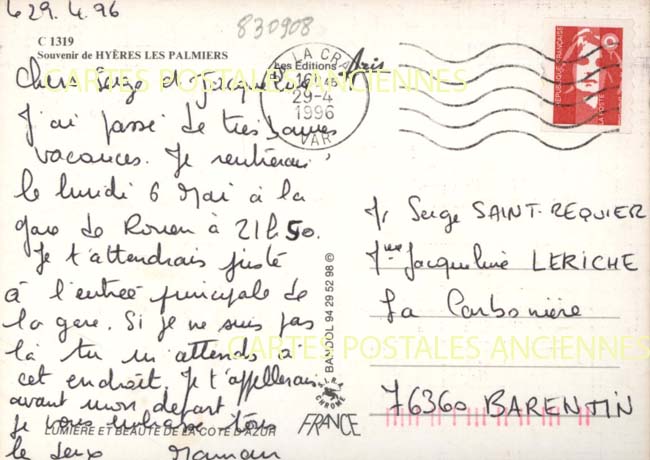 le 29.4.96
830908
C 1319
Souvenir de HYÈRES LES PALMIERS
Les Editions
LA CRAU
16H45
29-4
1996
VAR
REPUBLIQUE FRANÇAISE
LA POSTE
CARTES POSTALES ANCIENNES
Chers Serge et Jacqueline
J'ai passé de très bonnes
vacances. Je rentrerai
le lundi 6 Mai à la
gare de Rouen à 21h50.
Je t'attendrais juste
à l'entrée principale de
la gare. Si je ne suis pas
là tu m'attends à
cet endroit. Je t'appellerai
avant mon départ.
Je vous embrasse tous
le deux Maman
LUMIÈRE ET BEAUTÉ DE LA CÔTE D'AZUR
BANDOL 94 29 52 98 ©
FRANCE
Mr Serge SAINT-REQUIER
Mme Jacqueline LERICHE
La Carbonière
76360 BARENTIN
CARTES POSTALES ANCIENNES